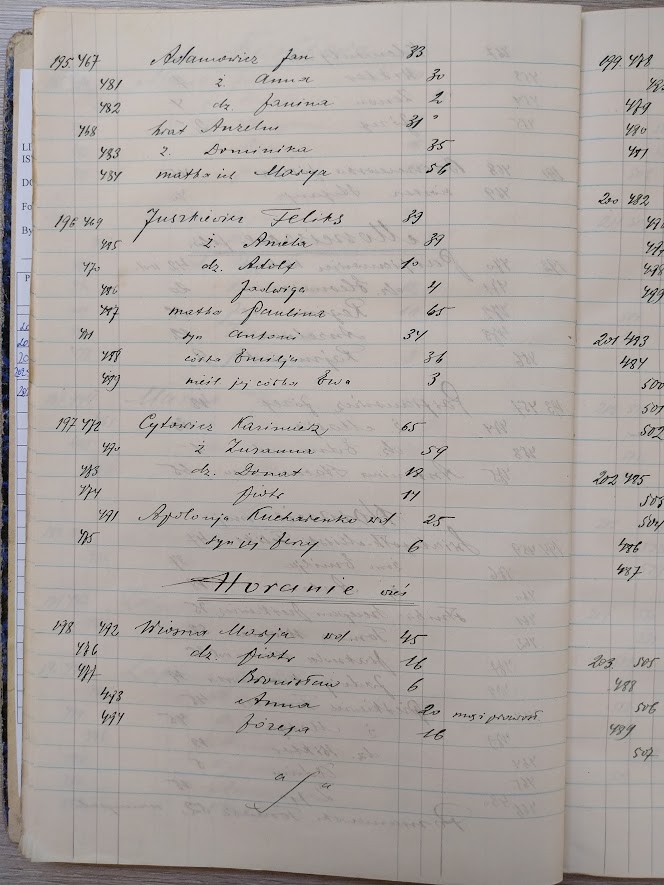 195 467 Adamowicz Jan 33
481 ż. Anna 30
482 dz. Janina 2
468 brat Anzelm 31
483 ż. Dominika 35
484 matka ich Marya 56
196 469 Juszkiewicz Feliks 39
485 ż. Aniela 39
470 dz. Adolf 10
486 Jadwiga 4
487 matka Paulina 65
471 syn Antoni 34
488 córka Emilja 36
489 jej córka Ewa 3
197 472 Cytowicz Kazimierz 65
490 ż Zuzanna 59
473 dz. Donat 18
474 Piotr 14
491 Apolonja Kucharenko wd. 25
475 syn jej Jerzy 6
Horanie wieś
198 492 Wiosna Marja wd. 45
476 dz. Piotr 16
477 Bronisław 6
493 Anna 20
494 Józefa 16
199 478
479
480
481
200 482
498
499
201 483
484
500
501
502
202 485
503
504
486
487
203 505
488
506
489
507